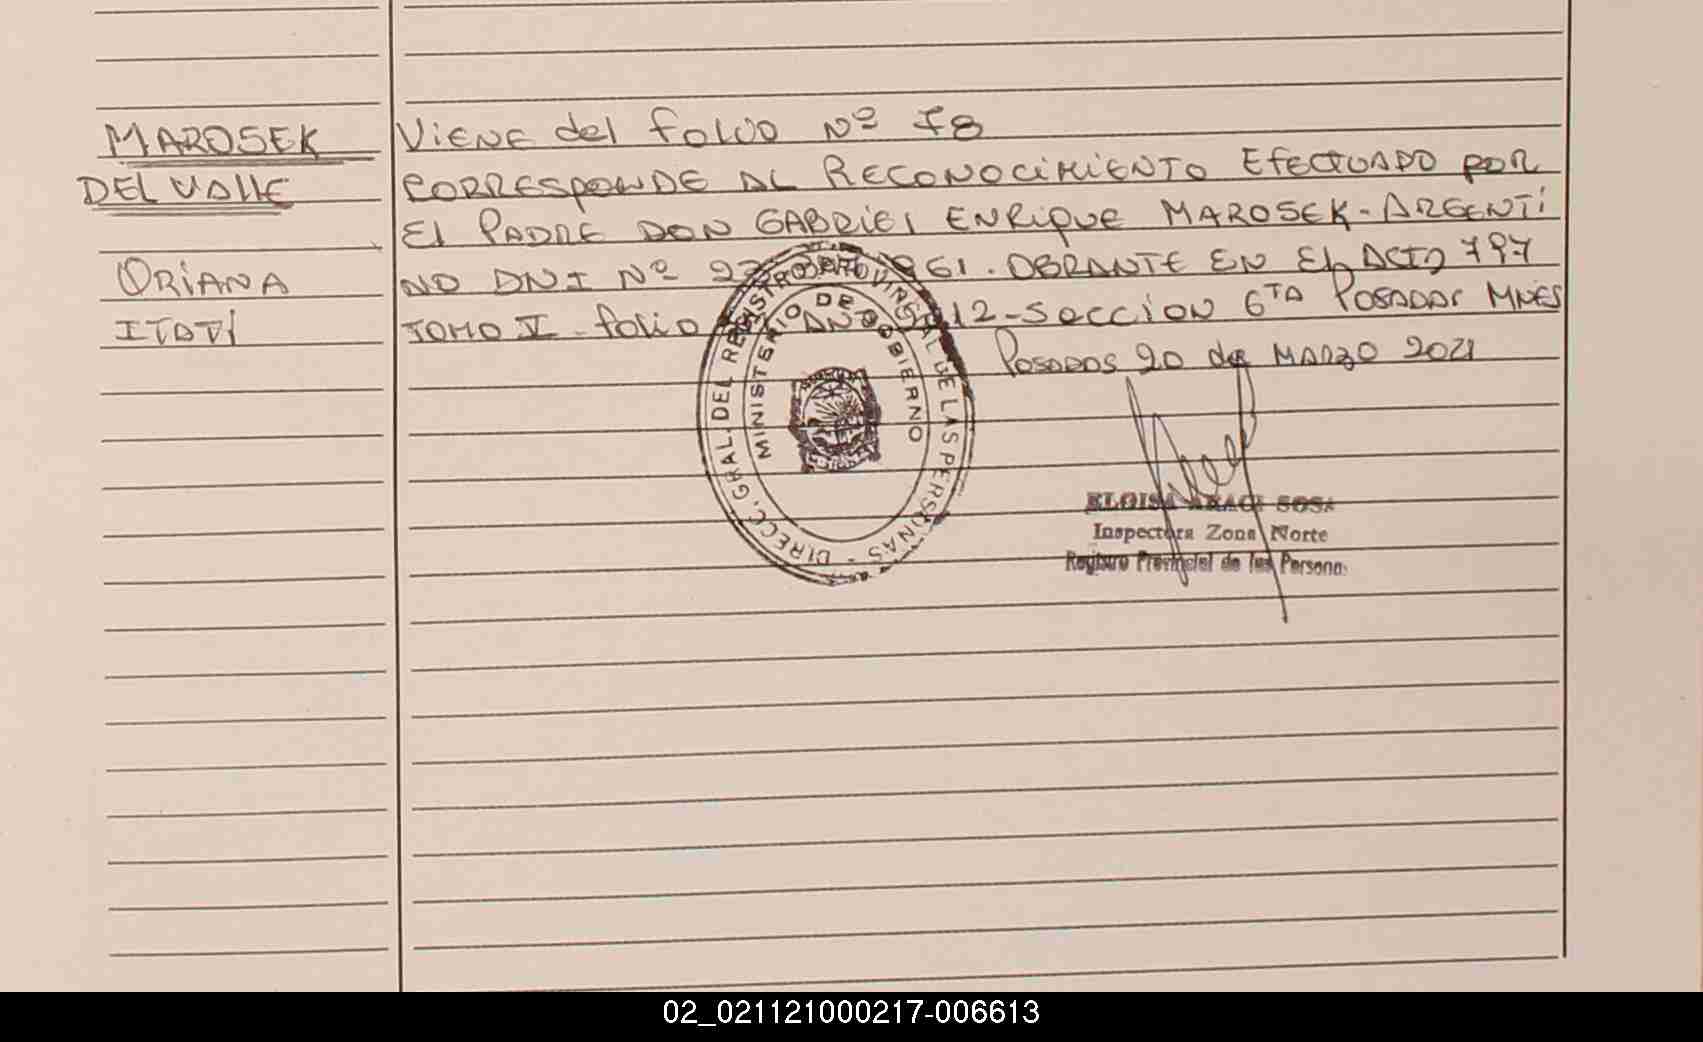 MAROSEK
DEL VALLE
ORIANA
ITATÍ
VIENE del folio Nº 78
CORRESPONDE AL RECONOCIMIENTO EFECTUADO POR
El PADRE DON GABRIEL ENRIQUE MAROSEK-ARGENTI
NO DNI Nº 961. OBRANTE EN El ACTA 797
TOMO V - folio AÑO 2012-SECCION 6TA POSADAS MNES
POSADAS 20 de MARZO 2021
DIRECC. GRAL. DEL REGISTRO PROVINCIAL DE LAS PERSONAS -
MINISTERIO DE GOBIERNO
ELOISA ARACI SOSA
Inspectora Zona Norte
Registro Provincial de las Personas
02_021121000217-006613